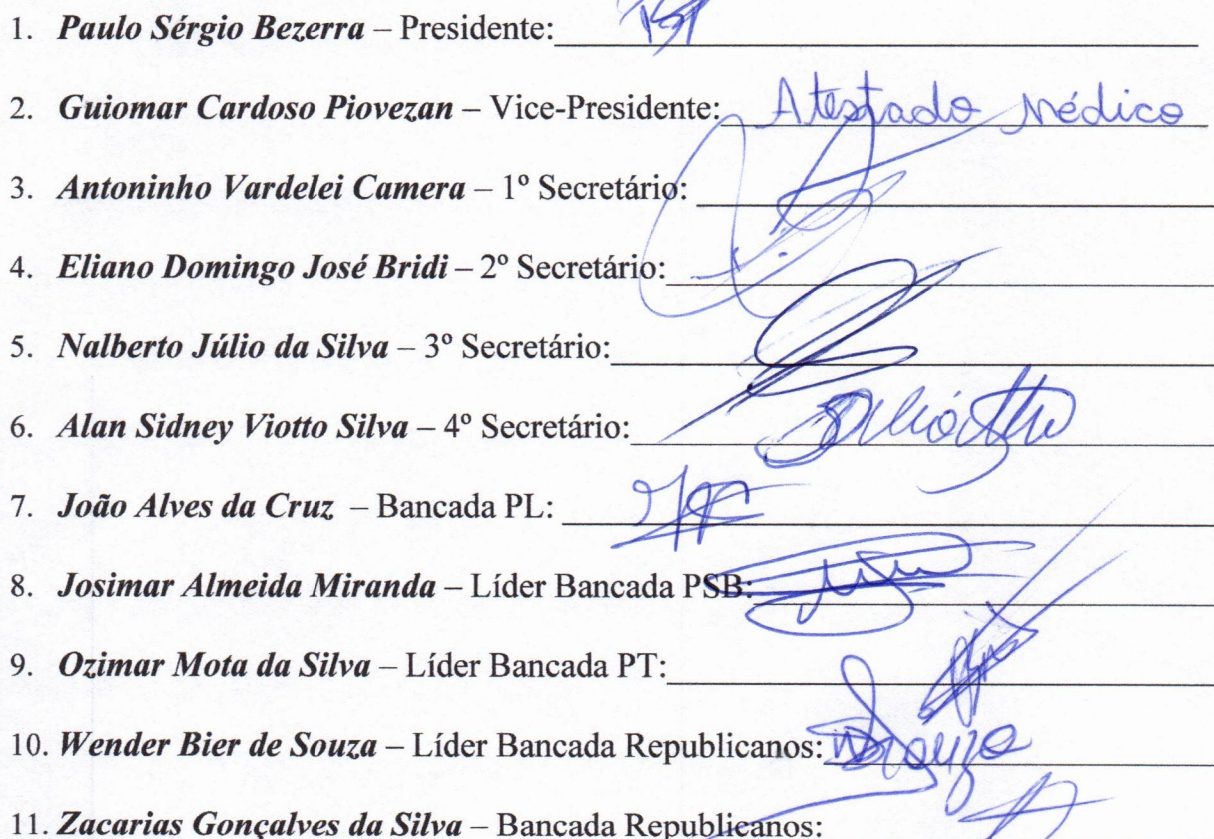 1. Paulo Sérgio Bezerra – Presidente:
2. Guiomar Cardoso Piovezan – Vice-Presidente: Atestado Médico
3. Antoninho Vardelei Camera – 1º Secretário:
4. Eliano Domingo José Bridi – 2º Secretário:
5. Nalberto Júlio da Silva – 3º Secretário:
6. Alan Sidney Viotto Silva – 4º Secretário:
7. João Alves da Cruz – Bancada PL:
8. Josimar Almeida Miranda – Líder Bancada PSB:
9. Ozimar Mota da Silva – Líder Bancada PT:
10. Wender Bier de Souza – Líder Bancada Republicanos:
11. Zacarias Gonçalves da Silva – Bancada Republicanos: